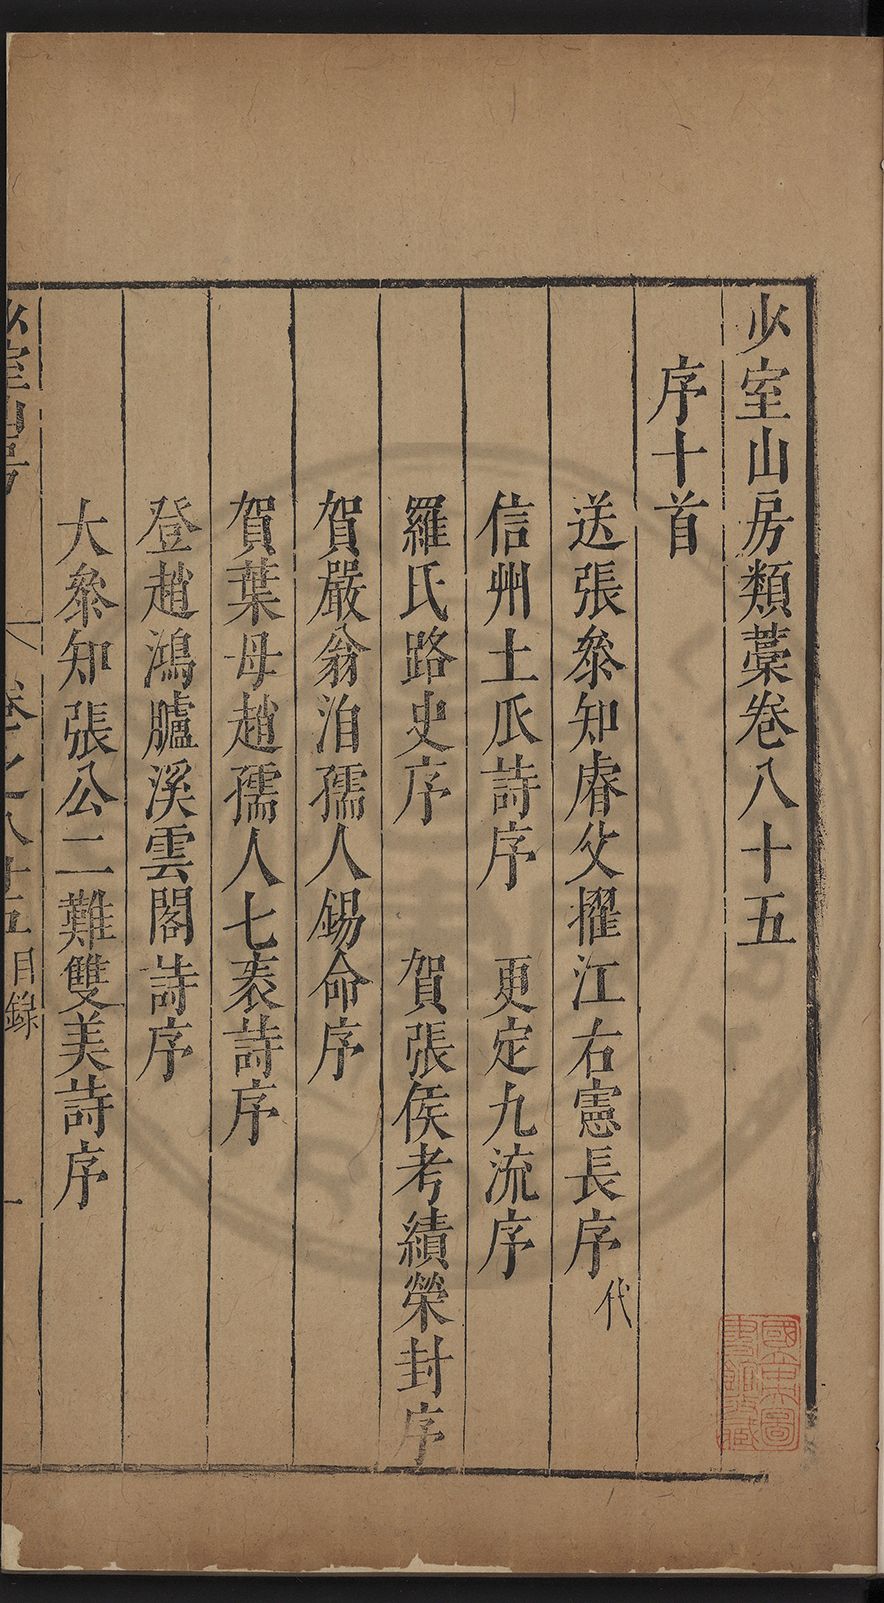 少室山房類藁卷八十五
序十首
送張叅知睿父擢江右憲長序代
信州土瓜詩序 更定九流序
羅氏路史序 賀張侯考績榮封序
賀嚴翁洎孺人錫命序
賀葉母趙孺人七袠詩序
登趙鴻臚溪雲閣詩序
大叅知張公二難雙美詩序
少室山房 卷之八十五目錄 一
國立中央圖書館收藏